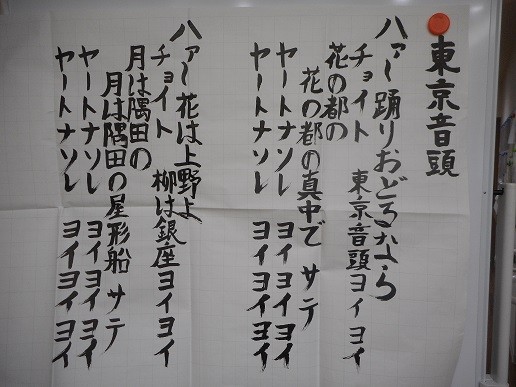 東京音頭
ハァー踊りおどるなら
チョイト 東京音頭ヨイヨイ
花の都の
花の都の真中で サテ
ヤートナソレ ヨイヨイヨイ
ヤートナソレ ヨイヨイヨイ
ハァー花は上野よ
チョイト 柳は銀座ヨイヨイ
月は隅田の
月は隅田の屋形船 サテ
ヤートナソレ ヨイヨイヨイ
ヤートナソレ ヨイヨイヨイ